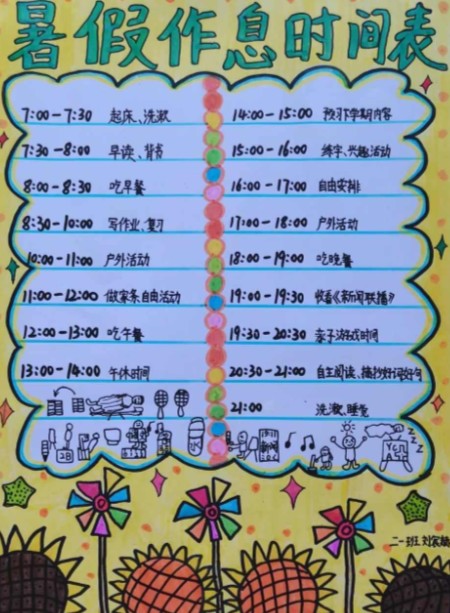 暑假作息时间表
7:00-7:30 起床、洗漱
7:30-8:00 早读、背书
8:00-8:30 吃早餐
8:30-10:00 写作业、复习
10:00-11:00 户外活动
11:00-12:00 做家务、自由活动
12:00-13:00 吃午餐
13:00-14:00 午休时间
14:00-15:00 预习学期内容
15:00-16:00 练字、兴趣活动
16:00-17:00 自由安排
17:00-18:00 户外活动
18:00-19:00 吃晚餐
19:00-19:30 收看《新闻联播》
19:30-20:30 亲子游戏时间
20:30-21:00 自主阅读、摘抄好词好句
21:00 洗漱、睡觉
2B
ZZZ
二一班 刘家